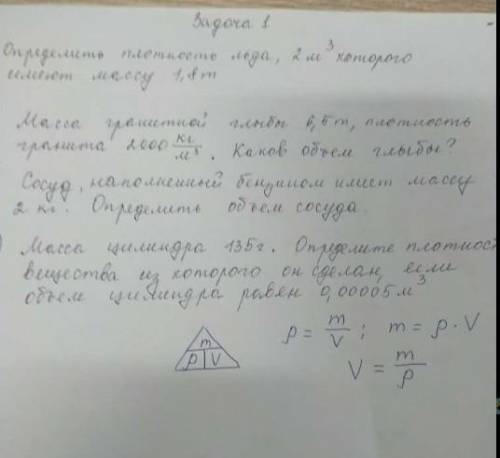 Задача 1
Определить плотность льда, 2 м³ которого
имеют массу 1,8 т
Масса гранитной глыбы 6,5 т, плотность
гранита 2600 кг/м³. Каков объем глыбы?
Сосуд, наполненный бензином имеет массу
2 кг. Определить объем сосуда.
) Масса цилиндра 135 г. Определите плотност
вещества из которого он сделан, если
объем цилиндра равен 0,00005 м³
ρ = m/V ; m = ρ · V
m
ρ V
V = m/ρ